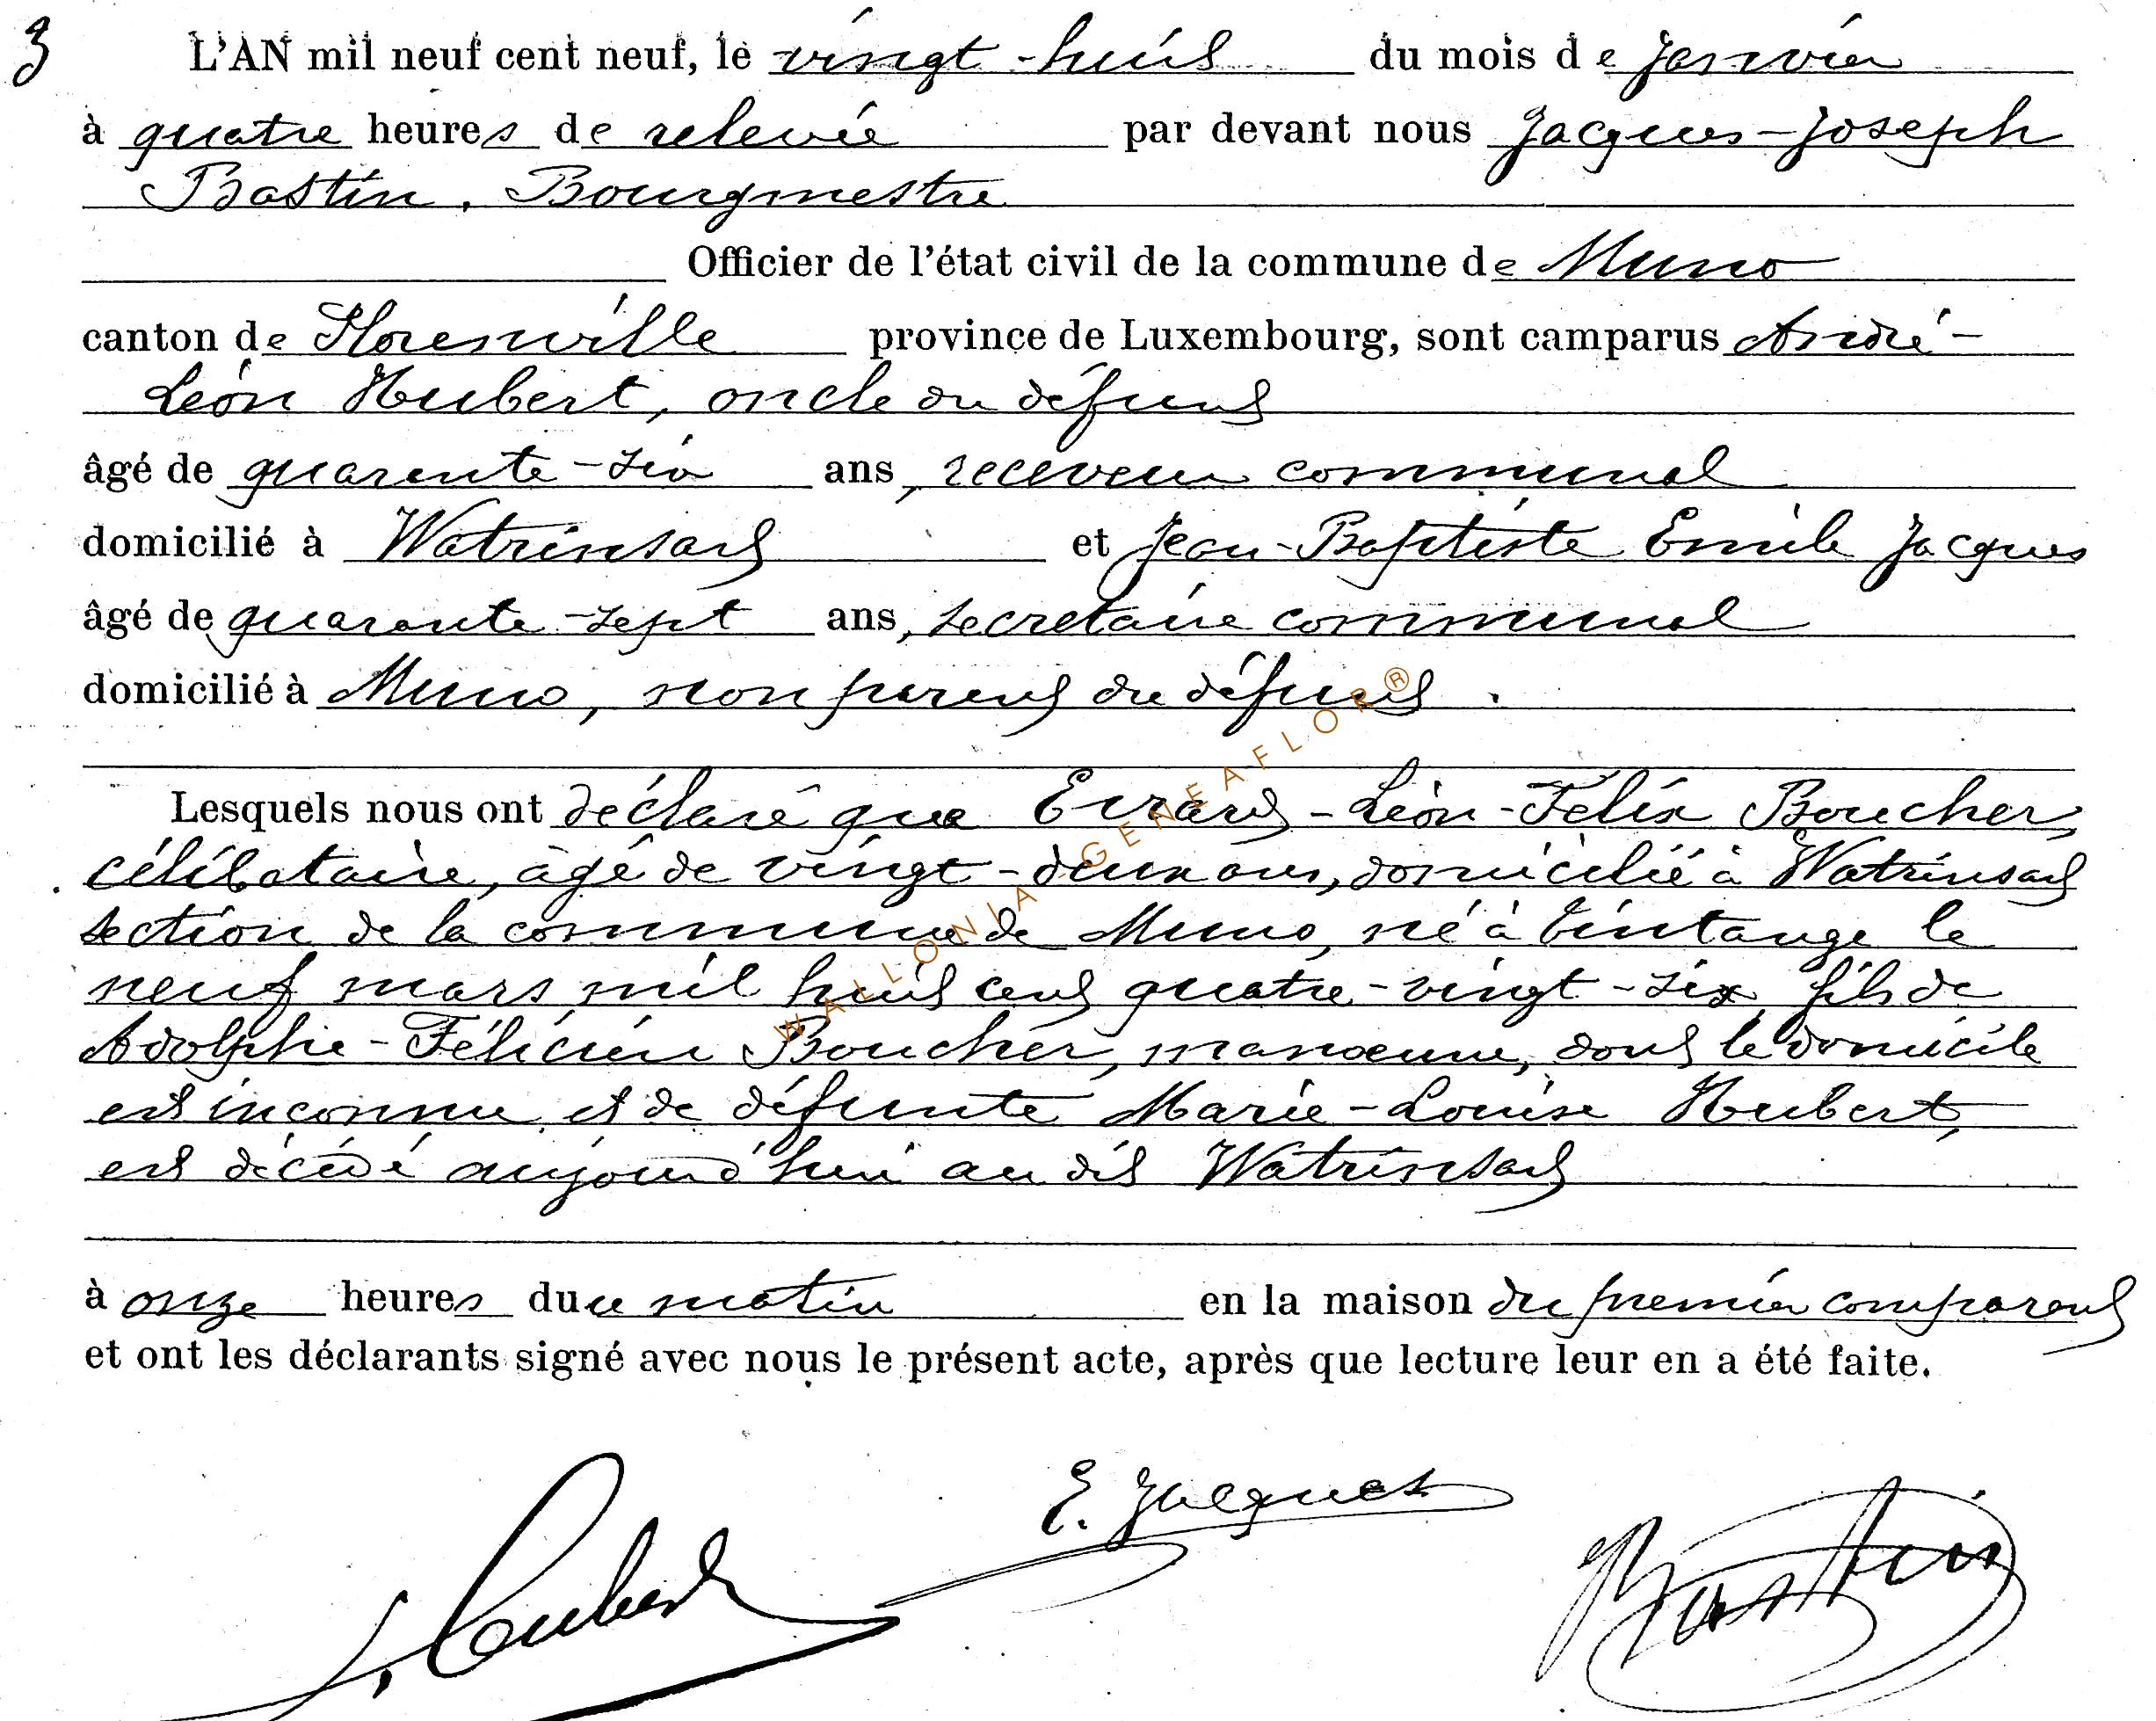 3
L'AN mil neuf cent neuf, le vingt-huit du mois de janvier
à quatre heures de relevée par devant nous Jacques-Joseph
Bastin, Bourgmestre
Officier de l'état civil de la commune de Muno
canton de Florenville province de Luxembourg, sont camparus André-
Léon Hubert, oncle du défunt
âgé de quarante-six ans, receveur communal
domicilié à Watrinsart et Jean-Baptiste Emile Jacques
âgé de quarante-sept ans, secrétaire communal
domicilié à Muno, non parent du défunt.
Lesquels nous ont déclaré que Evrard-Léon-Félix Boucher,
célibataire, âgé de vingt-deux ans, domicilié à Watrinsart
section de la commune de Muno, né à Tintange le
neuf mars mil huit cent quatre-vingt-six, fils de
Adolphe-Félicien Boucher, manœuvre, dont le domicile
est inconnu et de défunte Marie-Louise Hubert,
est décédé aujourd'hui au dit Watrinsart
à onze heures du matin en la maison du premier comparant
et ont les déclarants signé avec nous le présent acte, après que lecture leur en a été faite.
E. Jacques
L. Hubert
Bastin
WALLONIA GENEAFLOR®